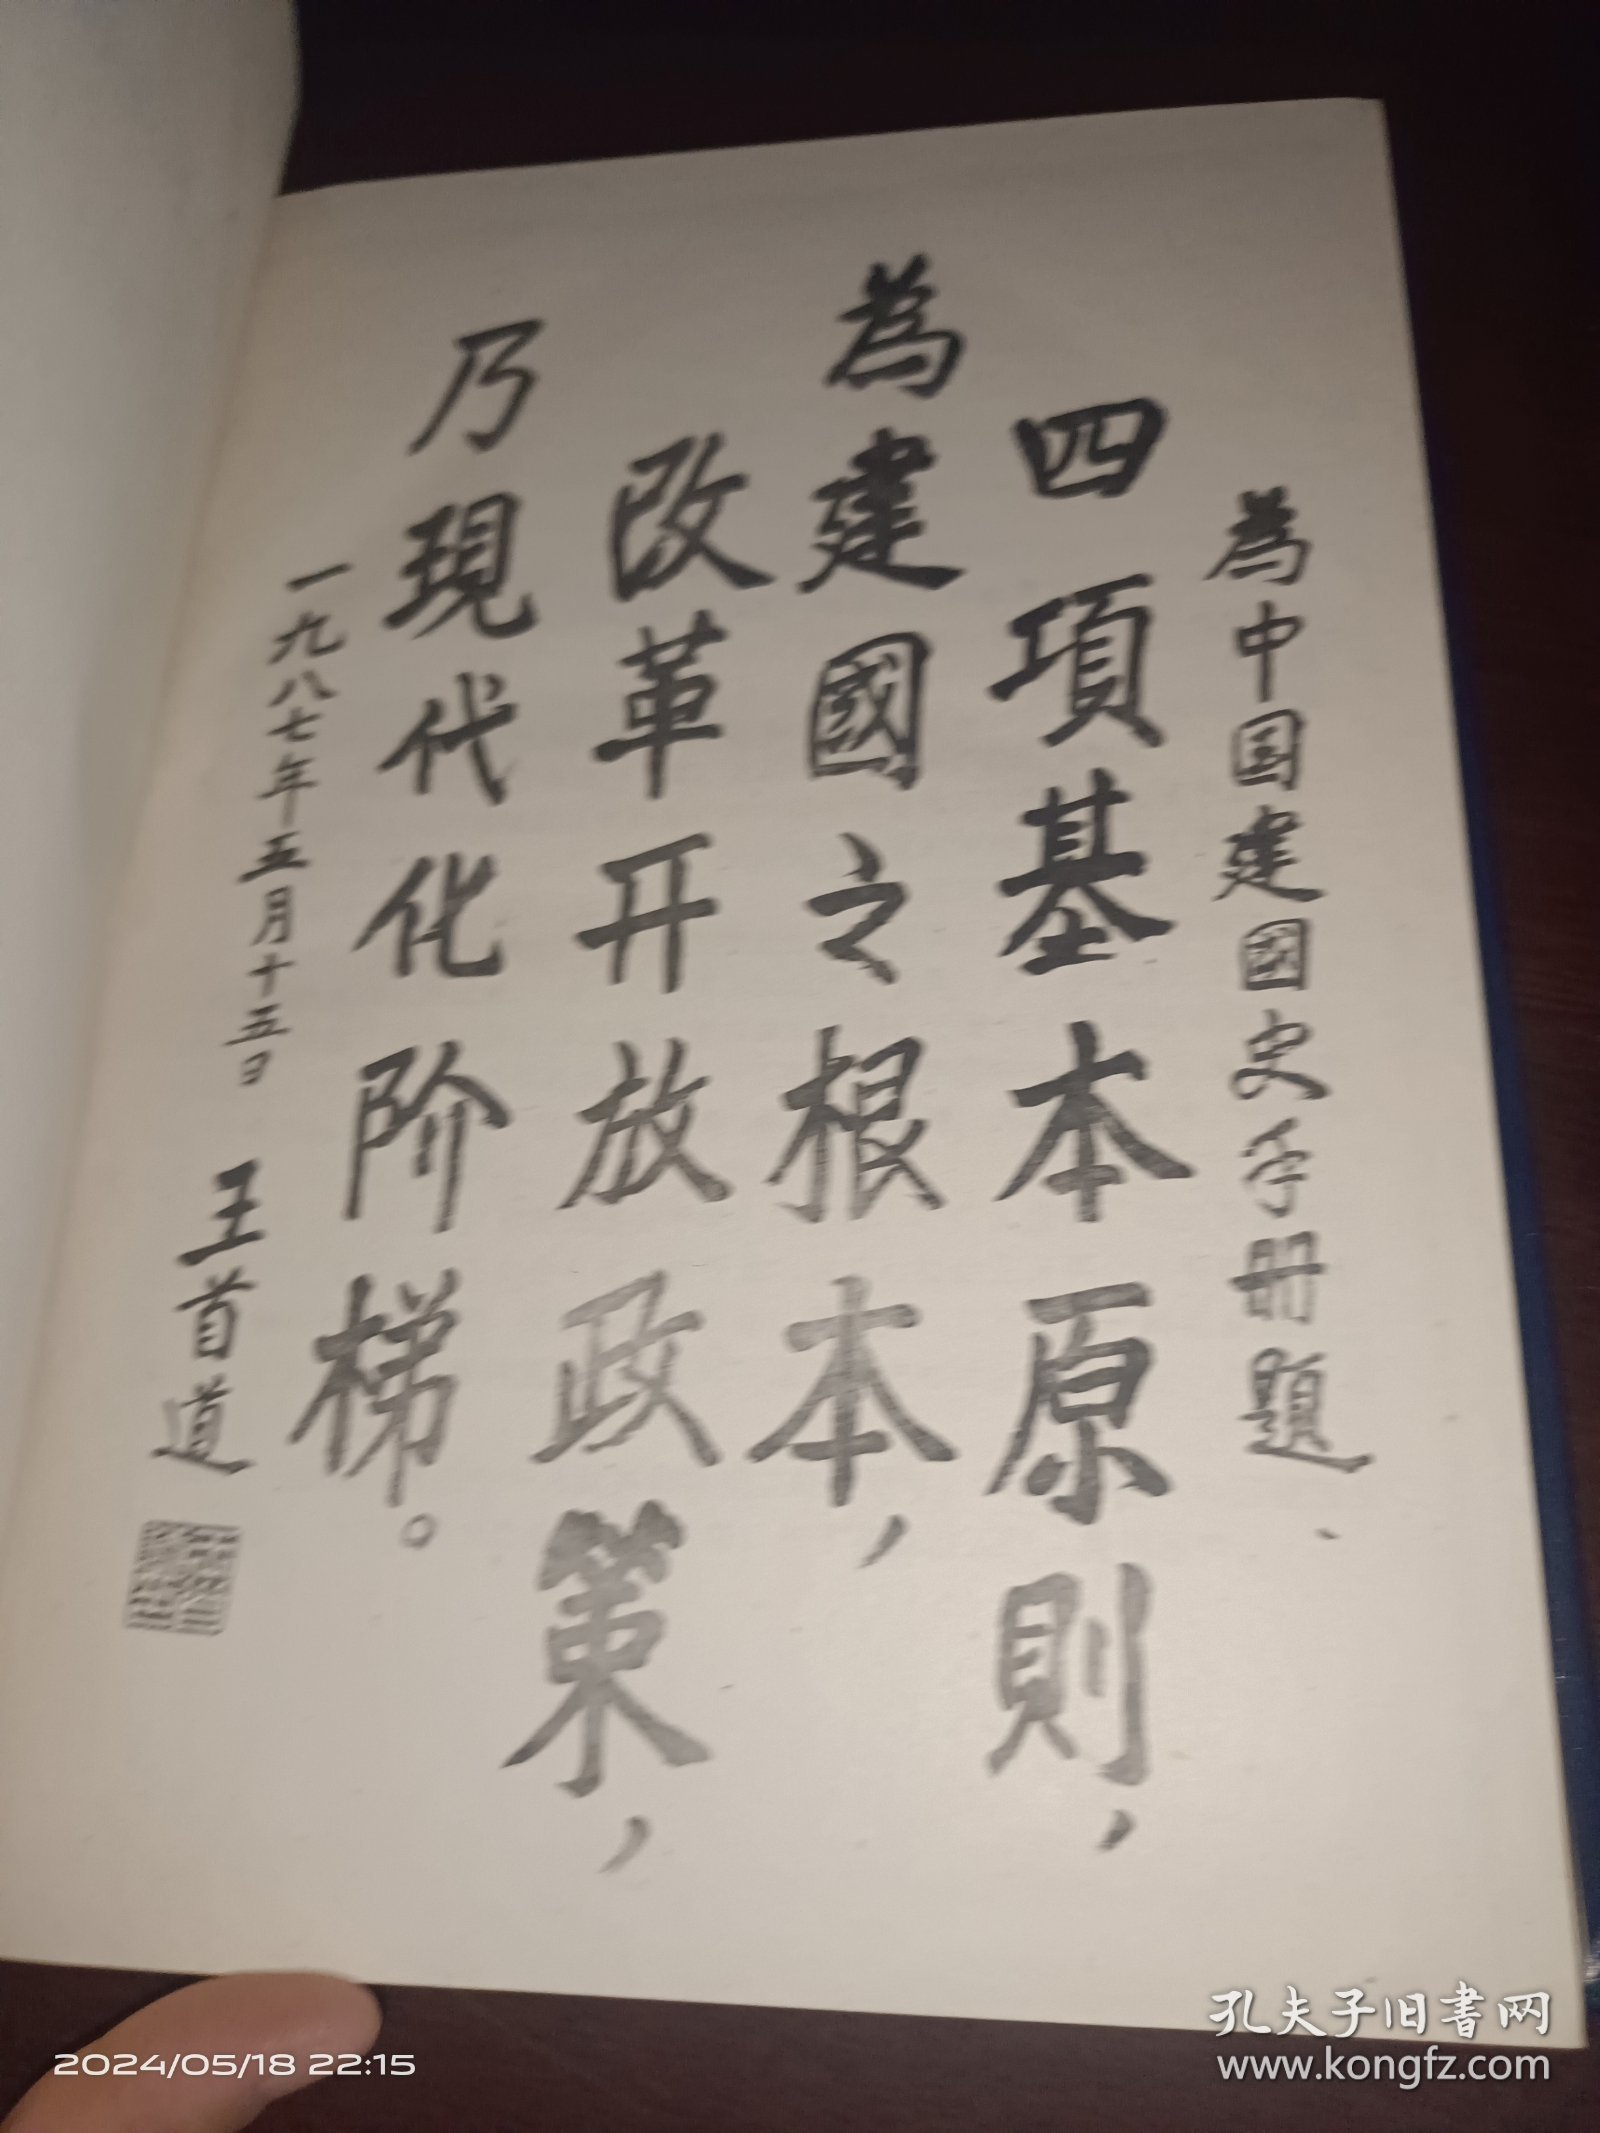 為中国建國史手册題、
四項基本原則，
為建國之根本，
改革开放政策，
乃現代化阶梯。
一九八七年五月十五日 王首道
2024/05/18 22:15
孔夫子旧書网
www.kongfz.com